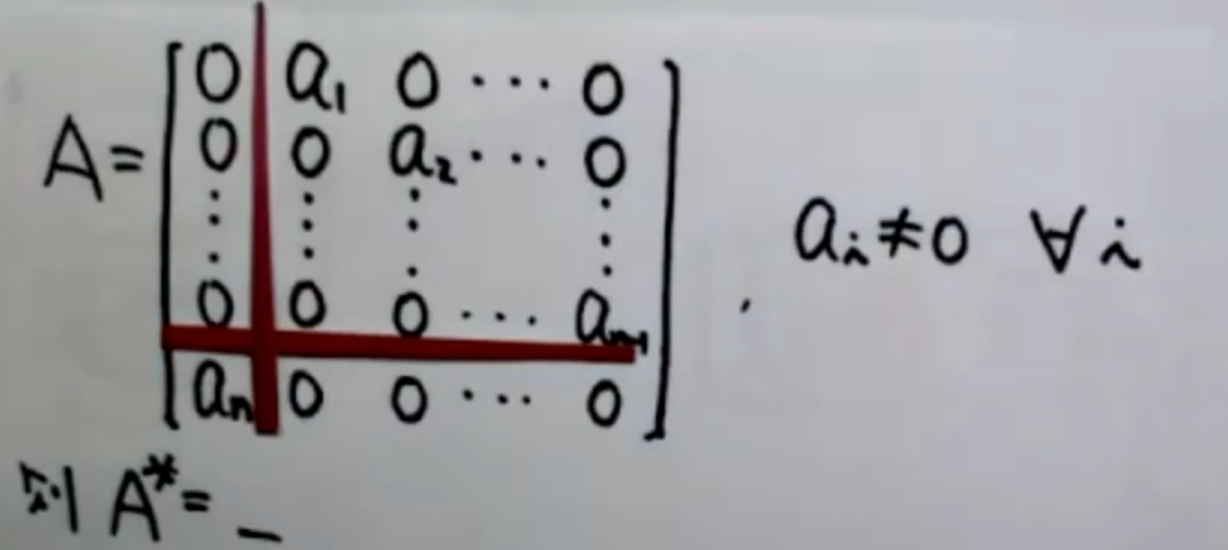 A= [ 0 a₁ 0 ··· 0
0 0 a₂ ··· 0
⋮ ⋮ ⋮ ⋮
0 0 0 ··· aₙ₋₁
aₙ 0 0 ··· 0 ] . aᵢ≠0 ∀i
则 A*= _